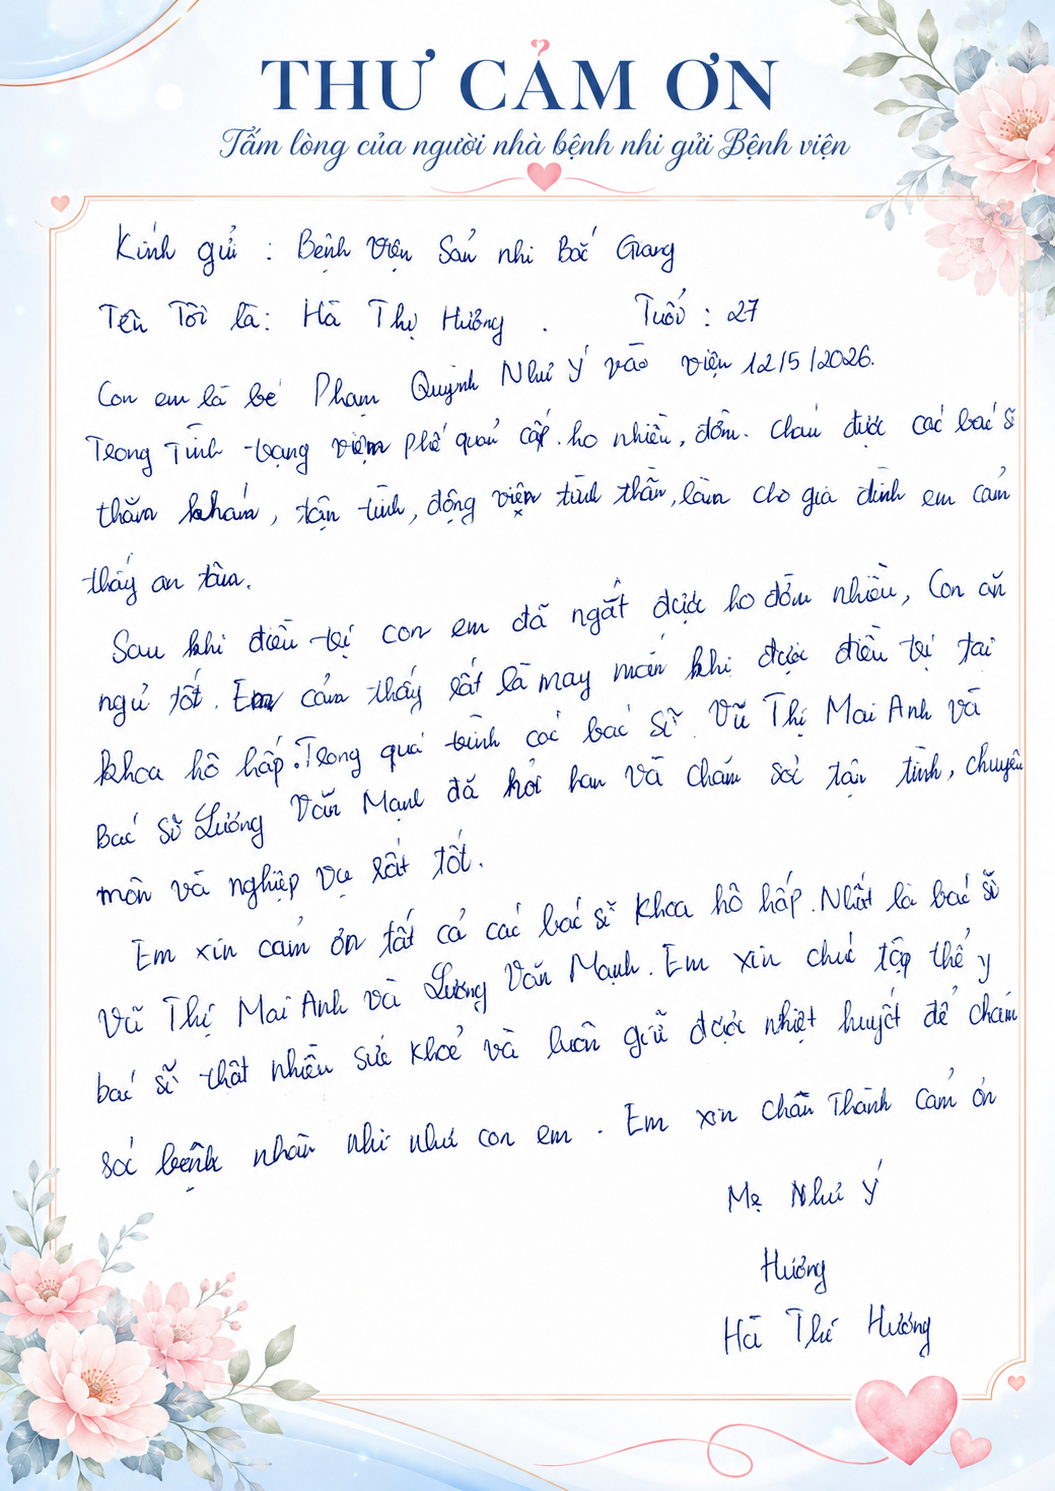 THƯ CẢM ƠN
Tấm lòng của người nhà bệnh nhi gửi Bệnh viện
Kính gửi : Bệnh viện Sản nhi Bắc Giang
Tên Tôi là: Hà Thị Hường . Tuổi : 27
Con em là bé Phạm Quỳnh Như Ý vào viện 12/5/2026.
Trong Tình trạng viêm phế quản cấp. ho nhiều, đờm. cháu được các bác sĩ
thăm khám, tận tình, động viên tinh thần, làm cho gia đình em cảm
thấy an tâm.
Sau khi điều trị con em đã ngắt được ho đờm nhiều, Con ăn
ngủ tốt. Em cảm thấy rất là may mắn khi được điều trị tại
khoa hô hấp. Trong quá trình các bác sĩ Vũ Thị Mai Anh và
Bác sĩ Lương Văn Mạnh đã hỏi han và chăm sóc tận tình, chuyên
môn và nghiệp vụ rất tốt.
Em xin cảm ơn tất cả các bác sĩ khoa hô hấp. Nhất là bác sĩ
Vũ Thị Mai Anh và Lương Văn Mạnh. Em xin chúc tập thể y
bác sĩ thật nhiều sức khoẻ và luôn giữ được nhiệt huyết để chăm
sóc bệnh nhân nhi như con em . Em xin chân Thành cảm ơn
Mẹ Như Ý
Hường
Hà Thị Hường